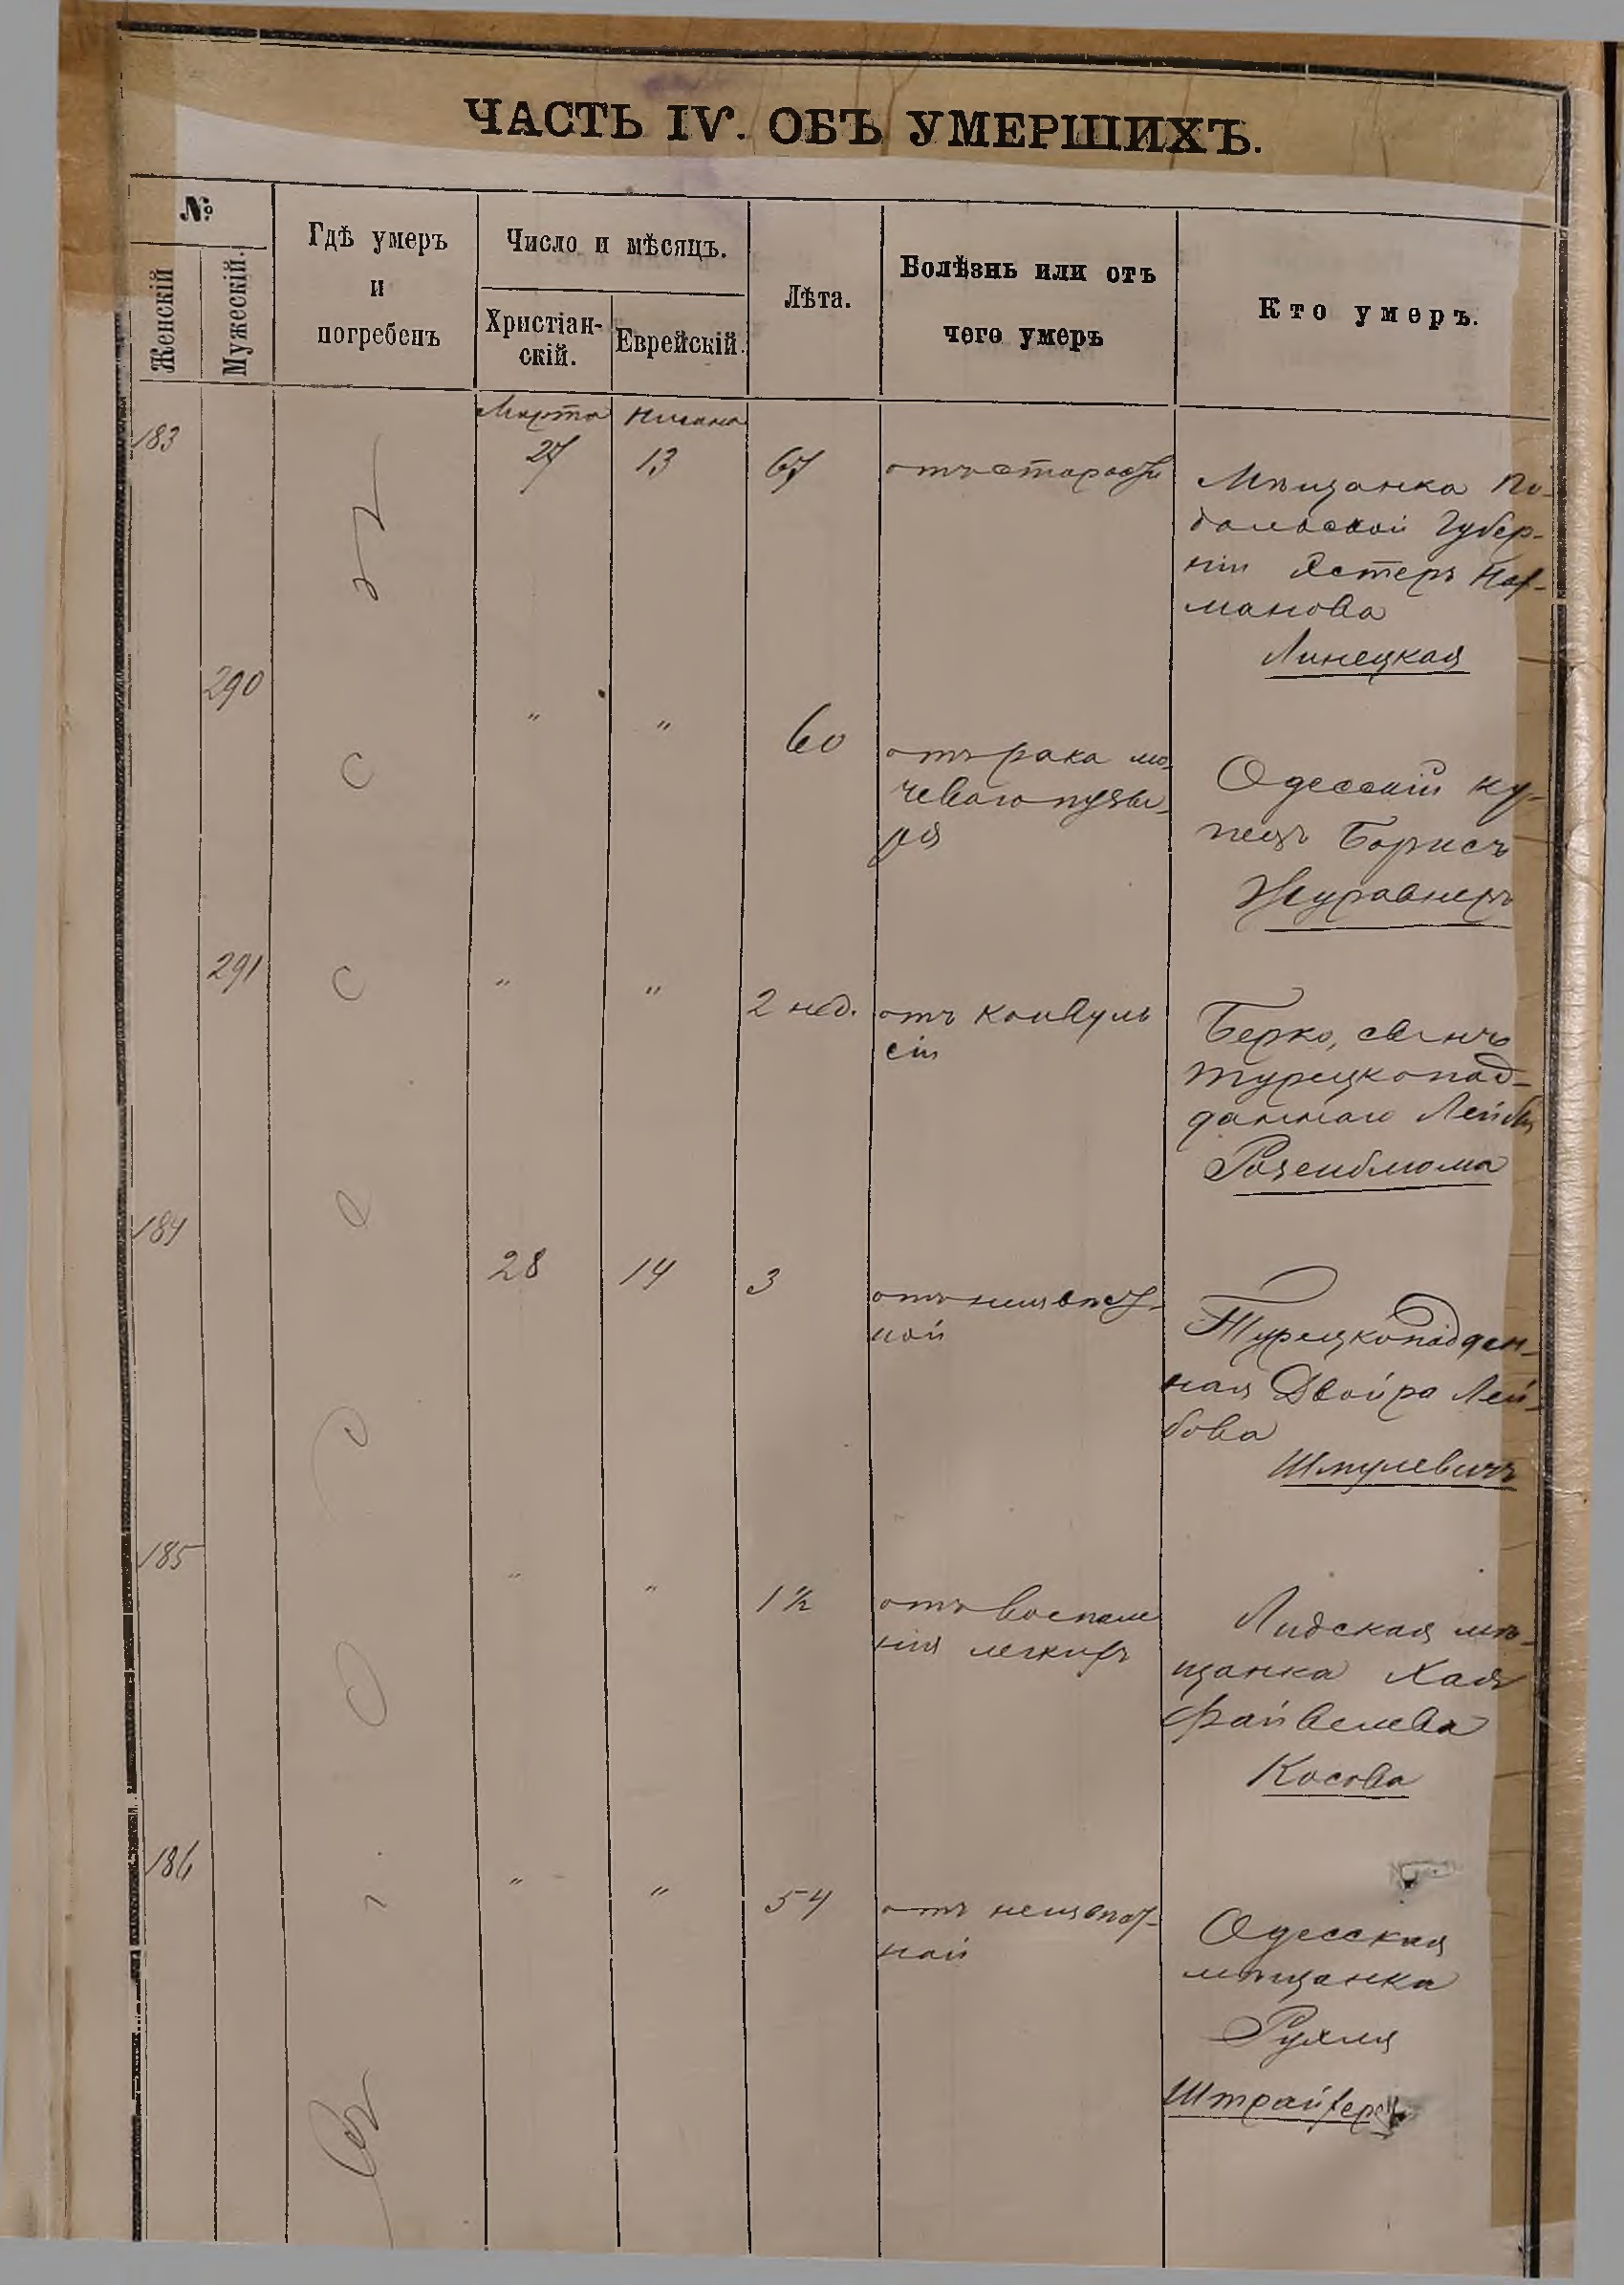 ЧАСТЬ IV. ОБЪ УМЕРШИХЪ.
№
Женскій
Мужескій.
Гдѣ умеръ
и
погребенъ
Число и мѣсяцъ.
Христіан-
скій.
Еврейскій.
Лѣта.
Болѣзнь или отъ
чего умеръ
Кто умеръ.
Марта Нисана
183 27 13 67 отъ старости
Мѣщанка По-
дольской Губер-
ніи Эстеръ Нах-
манова
Линецкая
290 " " 60 отъ рака мо-
чеваго пузы-
ря
Одесскій ку-
пецъ Борисъ
Журавнеръ
291 " " 2 нед. отъ конвуль
сіи
Берко, сынъ
турецкопод-
даннаго Лейбы
Розенблюма
184 28 14 3 отъ неизвѣст-
ной
Турецкоподдан-
ная Двойра Лей-
бова
Шмулевичъ
185 " " 1½ отъ воспале
нія легкихъ
Лидская мѣ-
щанка Хая
Файвелева
Косова
186 " " 54 отъ неизвѣст-
ной
Одесская
мѣщанка
Рухля